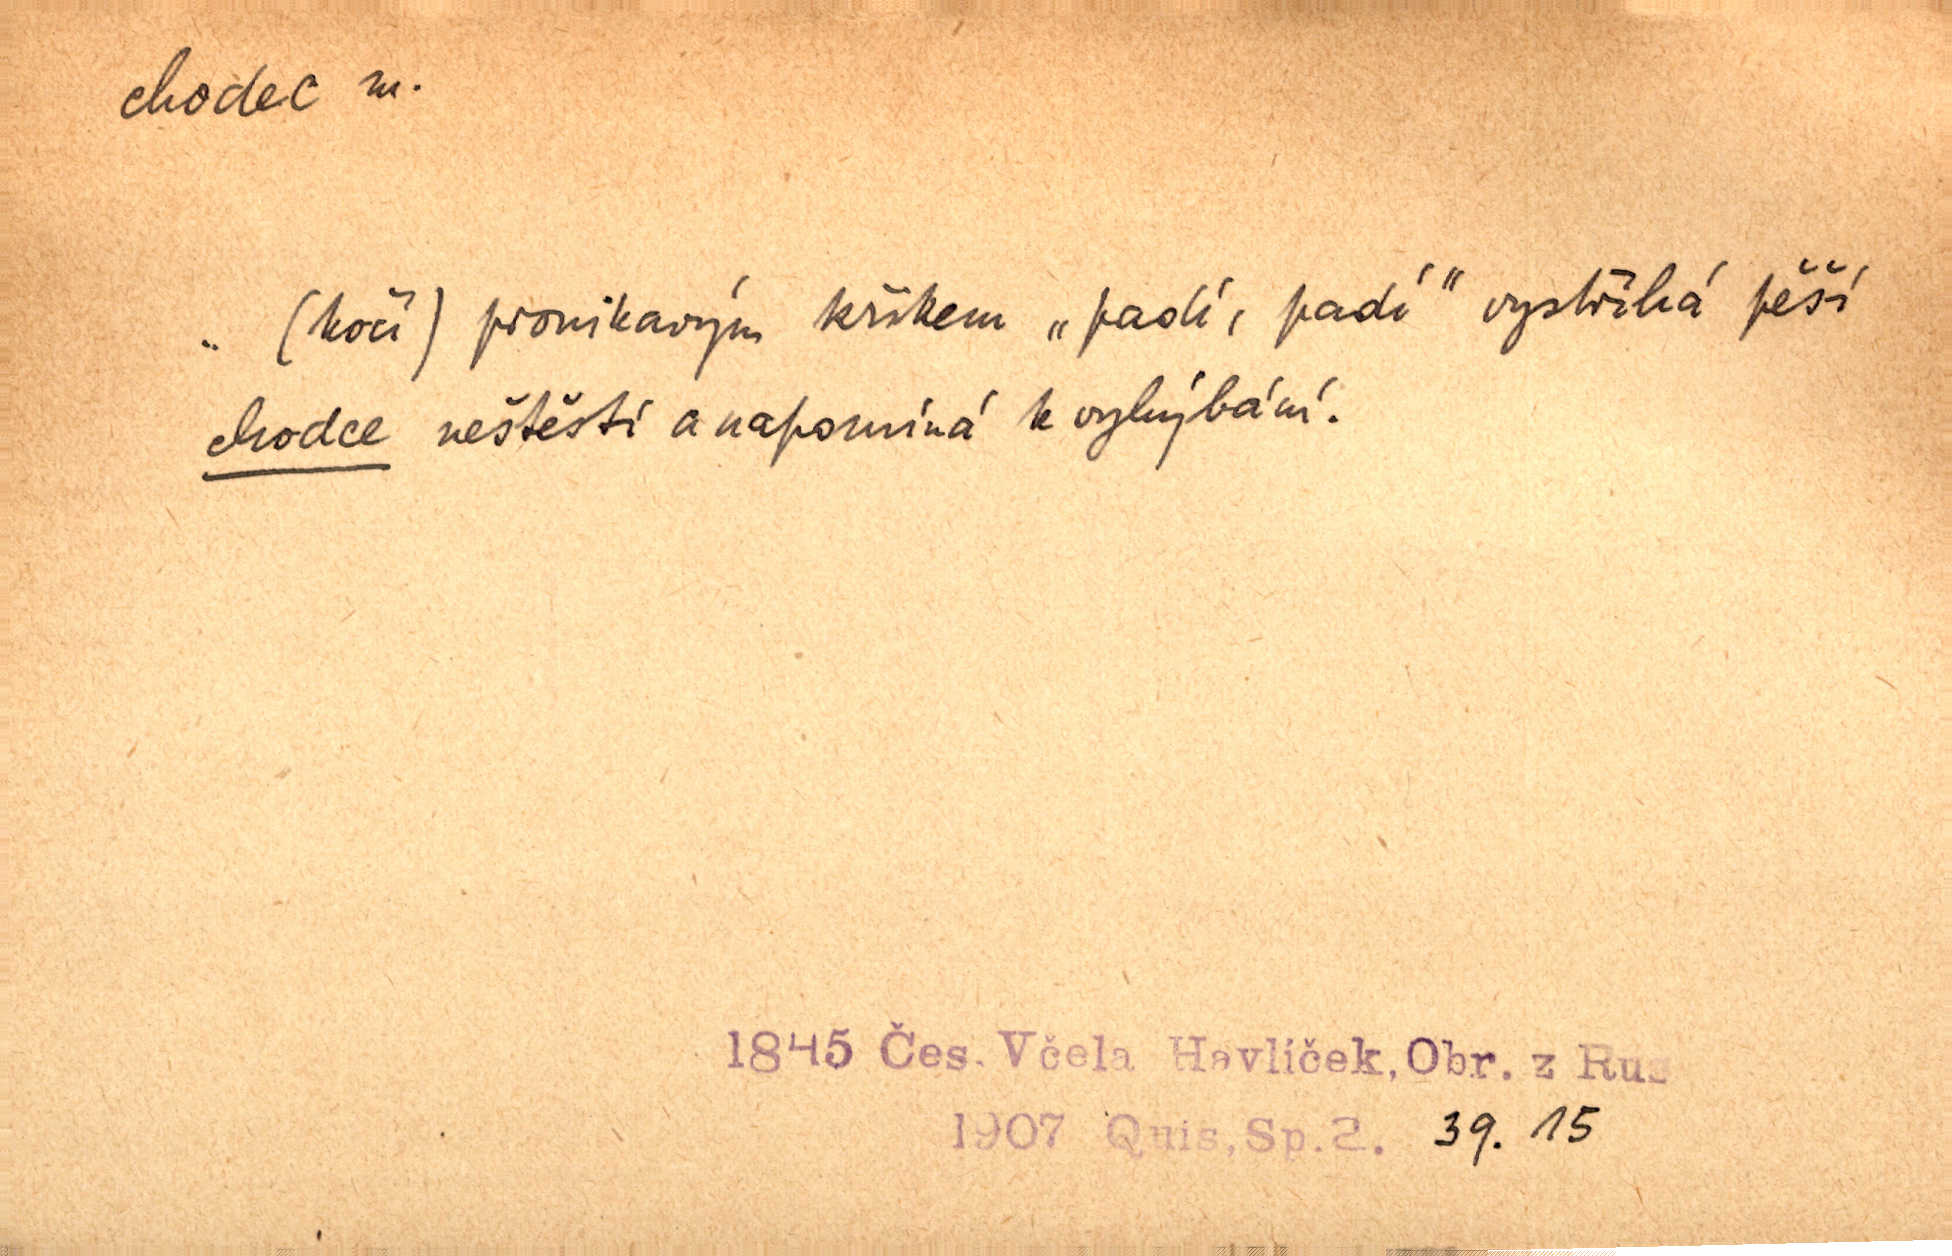 chodec m.
.. (kočí) pronikavým křikem „padí, padí“ vystříhá pěší
chodce neštěstí a napomíná k vyhýbání.
1845 Čes. Včela Havlíček, Obr. z Rus
1907 Quis, Sp. 2. 39. 15